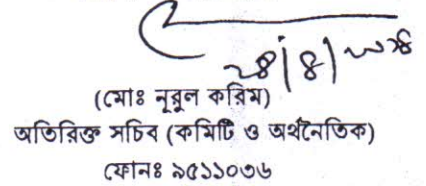 (মোঃ নূরুল করিম)
অতিরিক্ত সচিব (কমিটি ও অর্থনৈতিক)
ফোনঃ ৯৫১১০৩৬